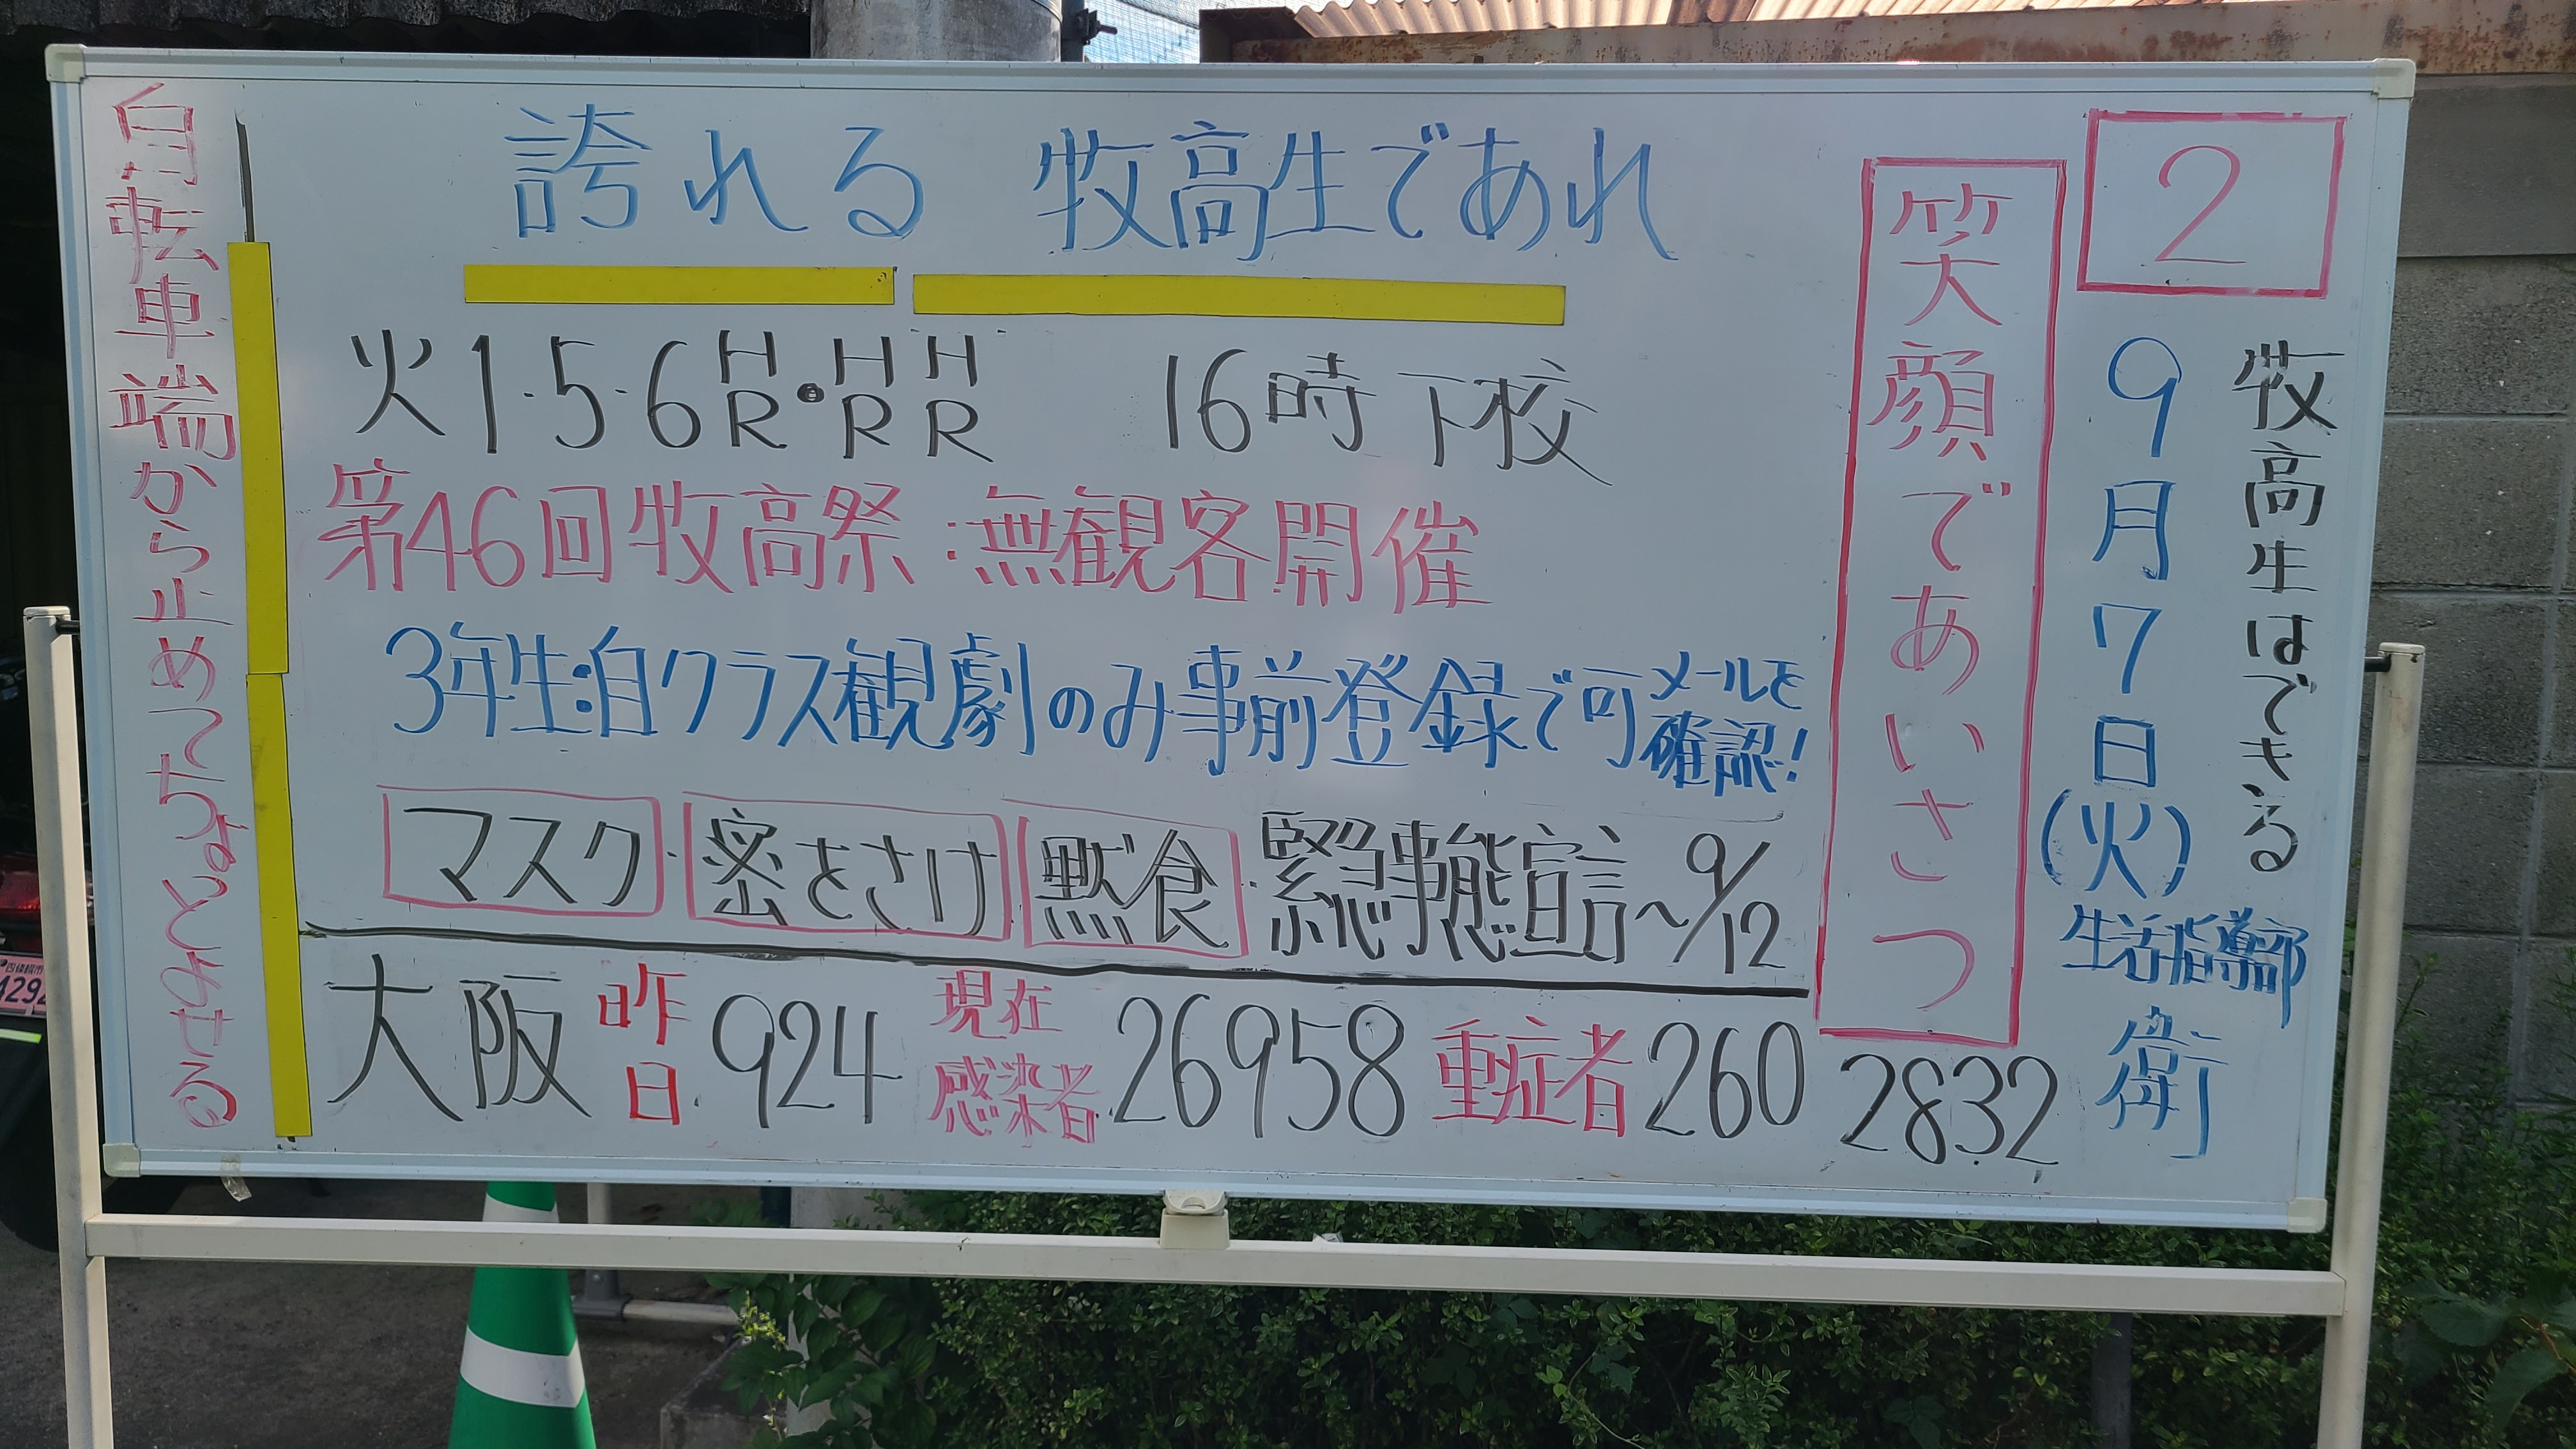 2
牧高生はできる
9月7日(火)
生活指導部
衛
笑顔であいさつ
2832
誇れる 牧高生であれ
火1・5・6HR・HRHR 16時下校
第46回牧高祭:無観客開催
3年生:自クラス観劇のみ事前登録で可メールを確認!
マスク・密をさけ黙食・緊急事態宣言~9/12
大阪昨日.924現在感染者.26958重症者260
自転車端から止めてちょっとみせる